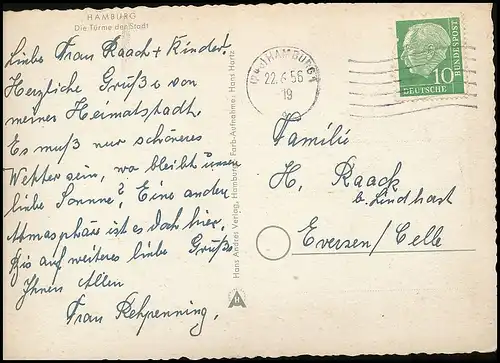 HAMBURG
Die Türme der Stadt
Liebe Frau Raack + Kinder!
Herzliche Grüße von
meiner Heimatstadt.
Es muß nur schöneres
Wetter sein, wo bleibt unsere
liebe Sonne? Eine andere
Atmosphäre ist es doch hier.
Bis auf weiteres liebe Grüße
Ihnen Allen
Frau Rehpenning.
Hans Andres Verlag, Hamburg
Farb-Aufnahme: Hans Hartz
HAMBURG
22.6.56
19
10
DEUTSCHE
BUNDESPOST
Familie
H. Raack
b. Lindhart
Eversen/Celle